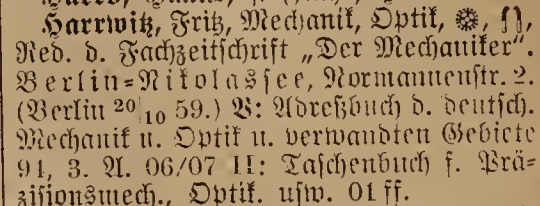 Harrwitz, Fritz, Mechanik, Optik,
Red. d. Fachzeitschrift „Der Mechaniker“.
Berlin=Nikolassee, Normannenstr. 2.
(Berlin 20/10 59.) V: Adreßbuch d. deutsch.
Mechanik u. Optik u. verwandten Gebiete
91, 3. A. 06/07 II: Taschenbuch f. Prä-
zisionsmech., Optik. usw. 01 ff.